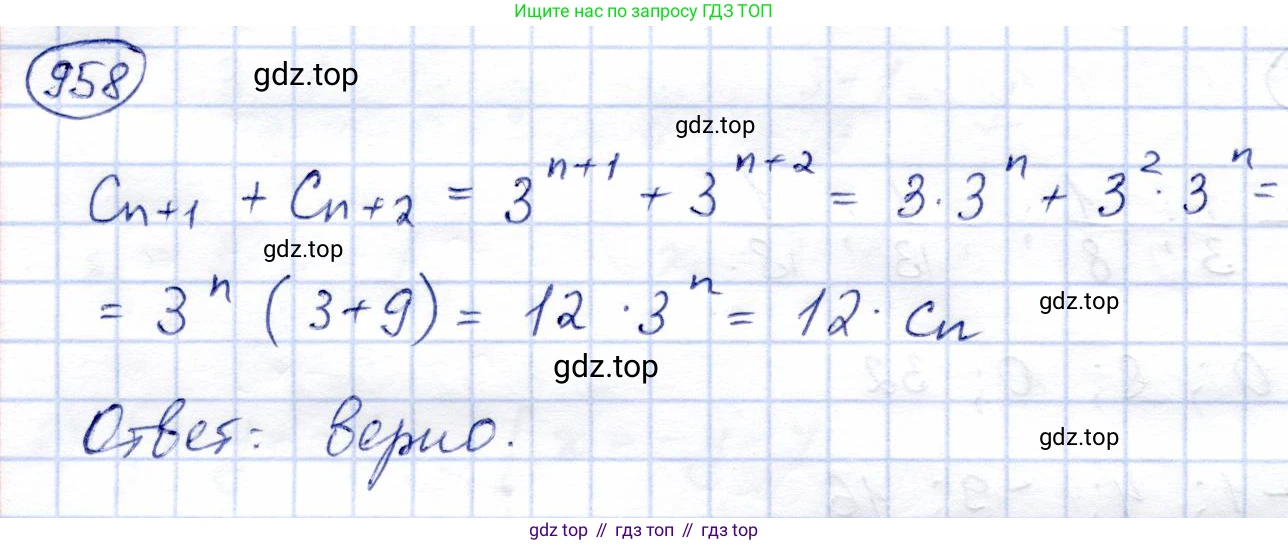 Ищите нас по запросу ГДЗ ТОП
958
gdz.top
gdz.top
Cn+1 + Cn+2 = 3^(n+1) + 3^(n+2) = 3·3^n + 3^2·3^n =
gdz.top
= 3^n (3+9) = 12·3^n = 12·Cn
gdz.top
gdz.top
Ответ: верно.
gdz.top
gdz top // гдз топ // gdz top